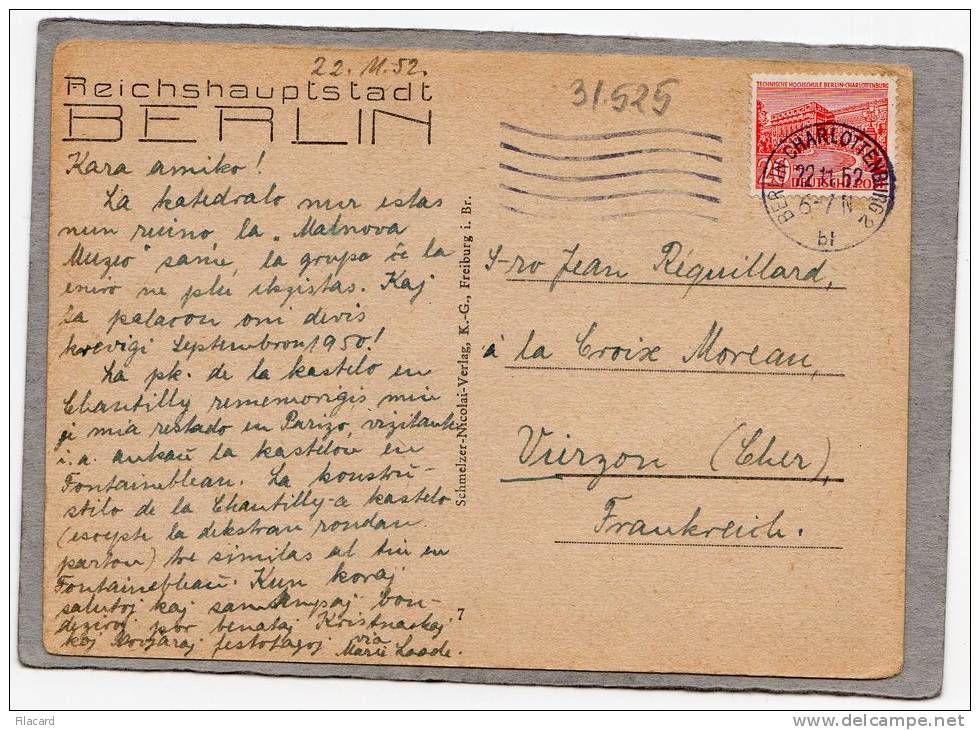 22.11.52.
Reichshauptstadt
BERLIN
31.525
TECHNISCHE HOCHSCHULE BERLIN-CHARLOTTENBURG
20 DEUTSCHE POST
BERLIN-CHARLOTTENBURG 2
22.11.52
6-7 N
bl
Kara amiko!
La katedralo nur estas
nun ruino, la "Malnova
Muzeo" same, la grupo ĉe la
eniro ne plu ekzistas. Kaj
la palacon oni devis
krevigi Septembron 1950!
La pk. de la kastelo en
Chantilly rememorigis min
pi mia restado en Parizo, vizitante
i.a. ankaŭ la kastelon en
Fontainebleau. La konstru-
stilo de la Chantilly-a kastelo
(escepte la dekstran rondan
parton) tre similas al tiu en
Fontainebleau. Kun koraj
salutoj kaj samtempaj bon-
deziroj por benataj Kristnaskaj
kaj Novjaraj festotagoj via
Marie Laade.
Schmelzer-Nicolai-Verlag, K.-G., Freiburg i. Br.
7
S-ro Jean Réquillard,
à la Croix Moreau,
Vierzon (Cher),
Frankreich.
filacard
www.delcampe.net